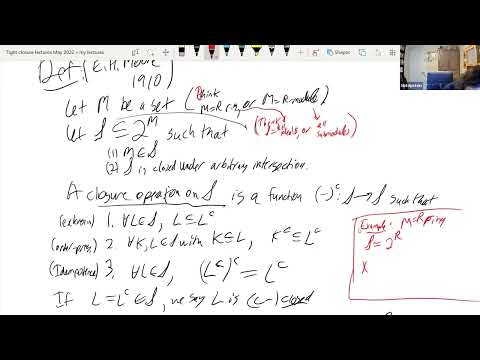 Tight closure lectures May 2022 • my lectures
Shapes
Def: (E. H. Moore
1910)
Let M be a set (Think M=R ring, or M=R-module)
Let S ⊆ 2^M such that (Think ideals, or all submodules)
(1) M∈S
(2) S is closed under arbitrary intersection.
A closure operation on S is a function (-)^c: S→S such that
(extension) 1. ∀L∈S, L⊆L^c
(order-pres.) 2. ∀K,L∈S with K⊆L, K^c⊆L^c
(Idempotence) 3. ∀L∈S, (L^c)^c = L^c
If L=L^c∈S, we say L is (c-)closed
Example: M=R ring
S=2^R
X